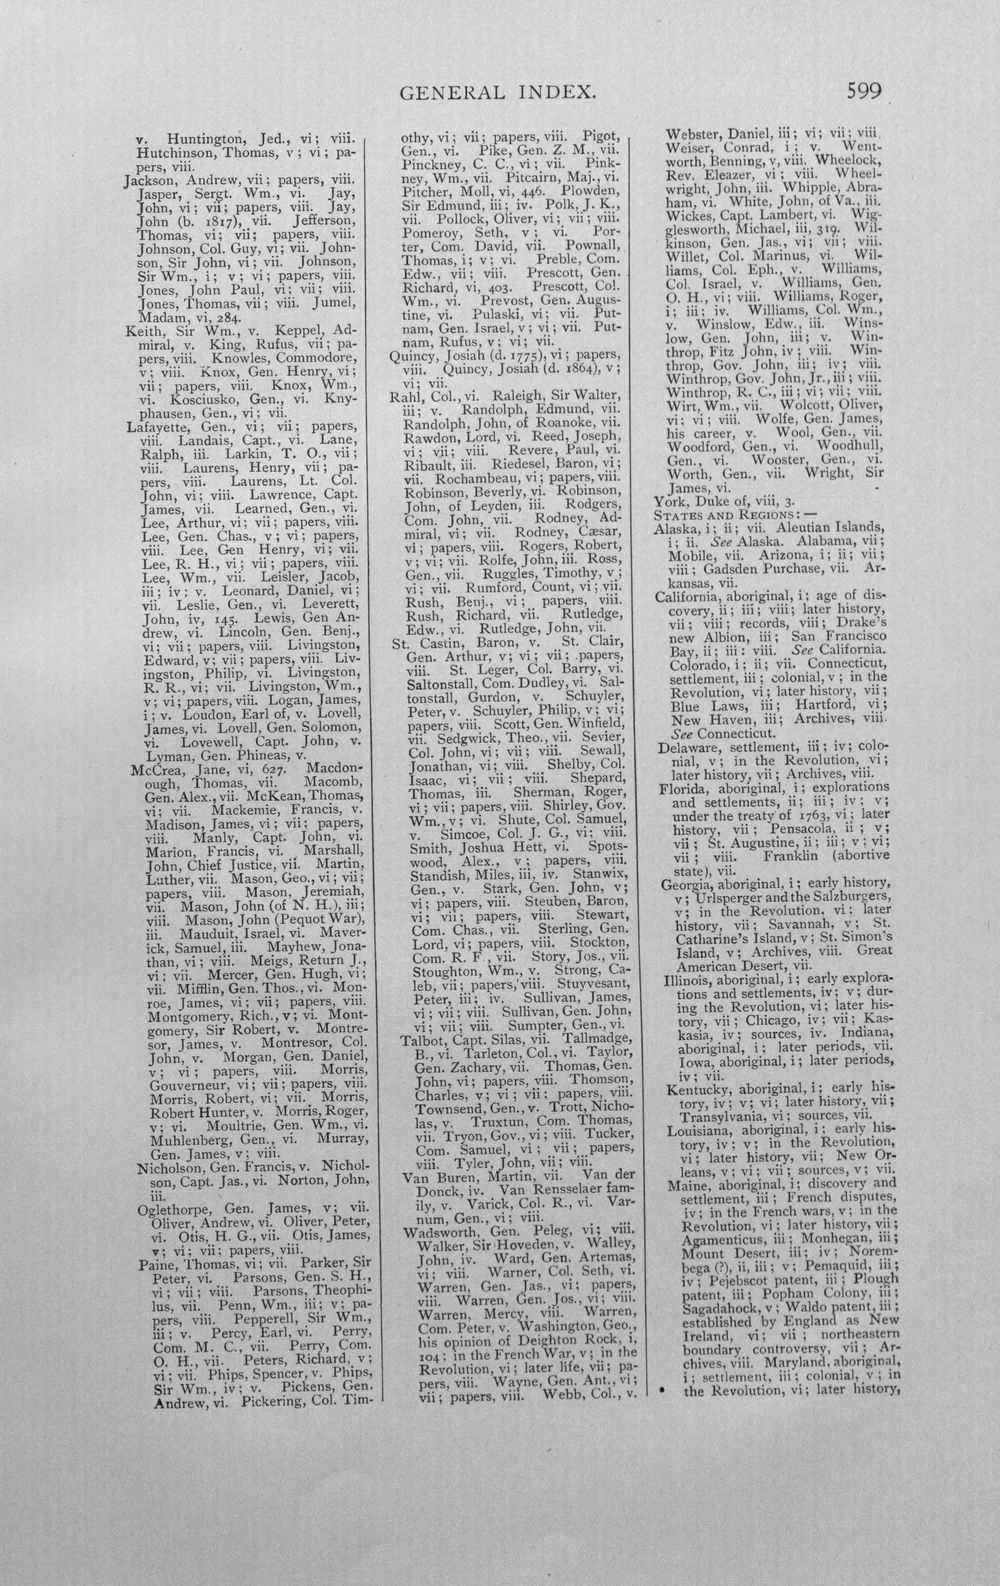 GENERAL INDEX. 599
v. Huntington, Jed., vi; viii.
Hutchinson, Thomas, v; vi; pa-
pers, viii.
Jackson, Andrew, vii; papers, viii.
Jasper, Sergt. Wm., vi. Jay,
John, vi; vii; papers, viii. Jay,
John (b. 1817), vii. Jefferson,
Thomas, vi; vii; papers, viii.
Johnson, Col. Guy, vi; vii. John-
son, Sir John, vi; vii. Johnson,
Sir Wm., i; v; vi; papers, viii.
Jones, John Paul, vi; vii; viii.
Jones, Thomas, vii; viii. Jumel,
Madam, vi, 284.
Keith, Sir Wm., v. Keppel, Ad-
miral, v. King, Rufus, vii; pa-
pers, viii. Knowles, Commodore,
v; viii. Knox, Gen. Henry, vi;
vii; papers, viii. Knox, Wm.,
vi. Kosciusko, Gen., vi. Kny-
phausen, Gen., vi; vii.
Lafayette, Gen., vi; vii; papers,
viii. Landais, Capt., vi. Lane,
Ralph, iii. Larkin, T. O., vii;
viii. Laurens, Henry, vii; pa-
pers, viii. Laurens, Lt. Col.
John, vi; viii. Lawrence, Capt.
James, vii. Learned, Gen., vi.
Lee, Arthur, vi; vii; papers, viii.
Lee, Gen. Chas., v; vi; papers,
viii. Lee, Gen Henry, vi; vii.
Lee, R. H., vi; vii; papers, viii.
Lee, Wm., vii. Leisler, Jacob,
iii; iv; v. Leonard, Daniel, vi;
vii. Leslie, Gen., vi. Leverett,
John, iv, 145. Lewis, Gen An-
drew, vi. Lincoln, Gen. Benj.,
vi; vii; papers, viii. Livingston,
Edward, v; vii; papers, viii. Liv-
ingston, Philip, vi. Livingston,
R. R., vi; vii. Livingston, Wm.,
v; vi; papers, viii. Logan, James,
i; v. Loudon, Earl of, v. Lovell,
James, vi. Lovell, Gen. Solomon,
vi. Lovewell, Capt. John, v.
Lyman, Gen. Phineas, v.
McCrea, Jane, vi, 627. Macdon-
ough, Thomas, vii. Macomb,
Gen. Alex., vii. McKean, Thomas,
vi; vii. Mackemie, Francis, v.
Madison, James, vi; vii; papers,
viii. Manly, Capt. John, vi.
Marion, Francis, vi. Marshall,
John, Chief Justice, vii. Martin,
Luther, vii. Mason, Geo., vi; vii;
papers, viii. Mason, Jeremiah,
vii. Mason, John (of N. H.), iii;
viii. Mason, John (Pequot War),
iii. Mauduit, Israel, vi. Maver-
ick, Samuel, iii. Mayhew, Jona-
than, vi; viii. Meigs, Return J.,
vi; vii. Mercer, Gen. Hugh, vi;
vii. Mifflin, Gen. Thos., vi. Mon-
roe, James, vi; vii; papers, viii.
Montgomery, Rich., v; vi. Mont-
gomery, Sir Robert, v. Montre-
sor, James, v. Montresor, Col.
John, v. Morgan, Gen. Daniel,
v; vi; papers, viii. Morris,
Gouverneur, vi; vii; papers, viii.
Morris, Robert, vi; vii. Morris,
Robert Hunter, v. Morris, Roger,
v; vi. Moultrie, Gen. Wm., vi.
Muhlenberg, Gen., vi. Murray,
Gen. James, v; viii.
Nicholson, Gen. Francis, v. Nichol-
son, Capt. Jas., vi. Norton, John,
iii.
Oglethorpe, Gen. James, v; vii.
Oliver, Andrew, vi. Oliver, Peter,
vi. Otis, H. G., vii. Otis, James,
v; vi; vii; papers, viii.
Paine, Thomas, vi; vii. Parker, Sir
Peter, vi. Parsons, Gen. S. H.,
vi; vii; viii. Parsons, Theophi-
lus, vii. Penn, Wm., iii; v; pa-
pers, viii. Pepperell, Sir Wm.,
iii; v. Percy, Earl, vi. Perry,
Com. M. C., vii. Perry, Com.
O. H., vii. Peters, Richard, v;
vi; vii. Phips, Spencer, v. Phips,
Sir Wm., iv; v. Pickens, Gen.
Andrew, vi. Pickering, Col. Tim-
othy, vi; vii; papers, viii. Pigot,
Gen., vi. Pike, Gen. Z. M., vii.
Pinckney, C. C., vi; vii. Pink-
ney, Wm., vii. Pitcairn, Maj., vi.
Pitcher, Moll, vi, 446. Plowden,
Sir Edmund, iii; iv. Polk, J. K.,
vii. Pollock, Oliver, vi; vii; viii.
Pomeroy, Seth, v; vi. Por-
ter, Com. David, vii. Pownall,
Thomas, i; v; vi. Preble, Com.
Edw., vii; viii. Prescott, Gen.
Richard, vi, 403. Prescott, Col.
Wm., vi. Prevost, Gen. Augus-
tine, vi. Pulaski, vi; vii. Put-
nam, Gen. Israel, v; vi; vii. Put-
nam, Rufus, v; vi; vii.
Quincy, Josiah (d. 1775), vi; papers,
viii. Quincy, Josiah (d. 1864), v;
vi; vii.
Rahl, Col., vi. Raleigh, Sir Walter,
iii; v. Randolph, Edmund, vii.
Randolph, John, of Roanoke, vii.
Rawdon, Lord, vi. Reed, Joseph,
vi; vii; viii. Revere, Paul, vi.
Ribault, iii. Riedesel, Baron, vi;
vii. Rochambeau, vi; papers, viii.
Robinson, Beverly, vi. Robinson,
John, of Leyden, iii. Rodgers,
Com. John, vii. Rodney, Ad-
miral, vi; vii. Rodney, Cæsar,
vi; papers, viii. Rogers, Robert,
v; vi; vii. Rolfe, John, iii. Ross,
Gen., vii. Ruggles, Timothy, v;
vi; vii. Rumford, Count, vi; vii.
Rush, Benj., vi; papers, viii.
Rush, Richard, vii. Rutledge,
Edw., vi. Rutledge, John, vii.
St. Castin, Baron, v. St. Clair,
Gen. Arthur, v; vi; vii; papers,
viii. St. Leger, Col. Barry, vi.
Saltonstall, Com. Dudley, vi. Sal-
tonstall, Gurdon, v. Schuyler,
Peter, v. Schuyler, Philip, v; vi;
papers, viii. Scott, Gen. Winfield,
vii. Sedgwick, Theo., vii. Sevier,
Col. John, vi; vii; viii. Sewall,
Jonathan, vi; viii. Shelby, Col.
Isaac, vi; vii; viii. Shepard,
Thomas, iii. Sherman, Roger,
vi; vii; papers, viii. Shirley, Gov.
Wm., v; vi. Shute, Col. Samuel,
v. Simcoe, Col. J. G., vi; viii.
Smith, Joshua Hett, vi. Spots-
wood, Alex., v; papers, viii.
Standish, Miles, iii, iv. Stanwix,
Gen., v. Stark, Gen. John, v;
vi; papers, viii. Steuben, Baron,
vi; vii; papers, viii. Stewart,
Com. Chas., vii. Sterling, Gen.
Lord, vi; papers, viii. Stockton,
Com. R. F., vii. Story, Jos., vii.
Stoughton, Wm., v. Strong, Ca-
leb, vii; papers, viii. Stuyvesant,
Peter, iii; iv. Sullivan, James,
vi; vii; viii. Sullivan, Gen. John,
vi; vii; viii. Sumpter, Gen., vi.
Talbot, Capt. Silas, vii. Tallmadge,
B., vi. Tarleton, Col., vi. Taylor,
Gen. Zachary, vii. Thomas, Gen.
John, vi; papers, viii. Thomson,
Charles, v; vi; vii; papers, viii.
Townsend, Gen., v. Trott, Nicho-
las, v. Truxtun, Com. Thomas,
vii. Tryon, Gov., vi; viii. Tucker,
Com. Samuel, vi; vii; papers,
viii. Tyler, John, vii; viii.
Van Buren, Martin, vii. Van der
Donck, iv. Van Rensselaer fam-
ily, v. Varick, Col. R., vi. Var-
num, Gen., vi; viii.
Wadsworth, Gen. Peleg, vi; viii.
Walker, Sir Hoveden, v. Walley,
John, iv. Ward, Gen. Artemas,
vi; viii. Warner, Col. Seth, vi.
Warren, Gen. Jas., vi; papers,
viii. Warren, Gen. Jos., vi; viii.
Warren, Mercy, viii. Warren,
Com. Peter, v. Washington, Geo.,
his opinion of Deighton Rock, i,
104; in the French War, v; in the
Revolution, vi; later life, vii; pa-
pers, viii. Wayne, Gen. Ant., vi;
vii; papers, viii. Webb, Col., v.
Webster, Daniel, iii; vi; vii; viii.
Weiser, Conrad, i; v. Went-
worth, Benning, v, viii. Wheelock,
Rev. Eleazer, vi; viii. Wheel-
wright, John, iii. Whipple, Abra-
ham, vi. White, John, of Va., iii.
Wickes, Capt. Lambert, vi. Wig-
glesworth, Michael, iii, 319. Wil-
kinson, Gen. Jas., vi; vii; viii.
Willet, Col. Marinus, vi. Wil-
liams, Col. Eph., v. Williams,
Col. Israel, v. Williams, Gen.
O. H., vi; viii. Williams, Roger,
i; iii; iv. Williams, Col. Wm.,
v. Winslow, Edw., iii. Wins-
low, Gen. John, iii; v. Win-
throp, Fitz John, iv; viii. Win-
throp, Gov. John, iii; iv; viii.
Winthrop, Gov. John, Jr., iii; viii.
Winthrop, R. C., iii; vi; vii; viii.
Wirt, Wm., vii. Wolcott, Oliver,
vi; vi; viii. Wolfe, Gen. James,
his career, v. Wool, Gen., vii.
Woodford, Gen., vi. Woodhull,
Gen., vi. Wooster, Gen., vi.
Worth, Gen., vii. Wright, Sir
James, vi.
York, Duke of, viii, 3.
STATES AND REGIONS: —
Alaska, i; ii; vii. Aleutian Islands,
i; ii. See Alaska. Alabama, vii;
Mobile, vii. Arizona, i; ii; vii;
viii; Gadsden Purchase, vii. Ar-
kansas, vii.
California, aboriginal, i; age of dis-
covery, ii; iii; viii; later history,
vii; viii; records, viii; Drake's
new Albion, iii; San Francisco
Bay, ii; iii: viii. See California.
Colorado, i; ii; vii. Connecticut,
settlement, iii; colonial, v; in the
Revolution, vi; later history, vii;
Blue Laws, iii; Hartford, vi;
New Haven, iii; Archives, viii.
See Connecticut.
Delaware, settlement, iii; iv; colo-
nial, v; in the Revolution, vi;
later history, vii; Archives, viii.
Florida, aboriginal, i; explorations
and settlements, ii; iii; iv; v;
under the treaty of 1763, vi; later
history, vii; Pensacola, ii; v;
vii; St. Augustine, ii; iii; v; vi;
vii; viii. Franklin (abortive
state), vii.
Georgia, aboriginal, i; early history,
v; Urlsperger and the Salzburgers,
v; in the Revolution, vi; later
history, vii; Savannah, v; St.
Catharine's Island, v; St. Simon's
Island, v; Archives, viii. Great
American Desert, vii.
Illinois, aboriginal, i; early explora-
tions and settlements, iv; v; dur-
ing the Revolution, vi; later his-
tory, vii; Chicago, iv; vii; Kas-
kasia, iv; sources, iv. Indiana,
aboriginal, i; later periods, vii.
Iowa, aboriginal, i; later periods,
iv; vii.
Kentucky, aboriginal, i; early his-
tory, iv; v; vi; later history, vii;
Transylvania, vi; sources, vii.
Louisiana, aboriginal, i; early his-
tory, iv; v; in the Revolution,
vi; later history, vii; New Or-
leans, v; vi; vii; sources, v; vii.
Maine, aboriginal, i; discovery and
settlement, iii; French disputes,
iv; in the French wars, v; in the
Revolution, vi; later history, vii;
Agamenticus, iii; Monhegan, iii;
Mount Desert, iii; iv; Norem-
bega (?), ii, iii; v; Pemaquid, iii;
iv; Pejebscot patent, iii; Plough
patent, iii; Popham Colony, iii;
Sagadahock, v; Waldo patent, iii;
established by England as New
Ireland, vi; vii; northeastern
boundary controversy, vii; Ar-
chives, viii. Maryland, aboriginal,
i; settlement, iii; colonial, v; in
the Revolution, vi; later history,